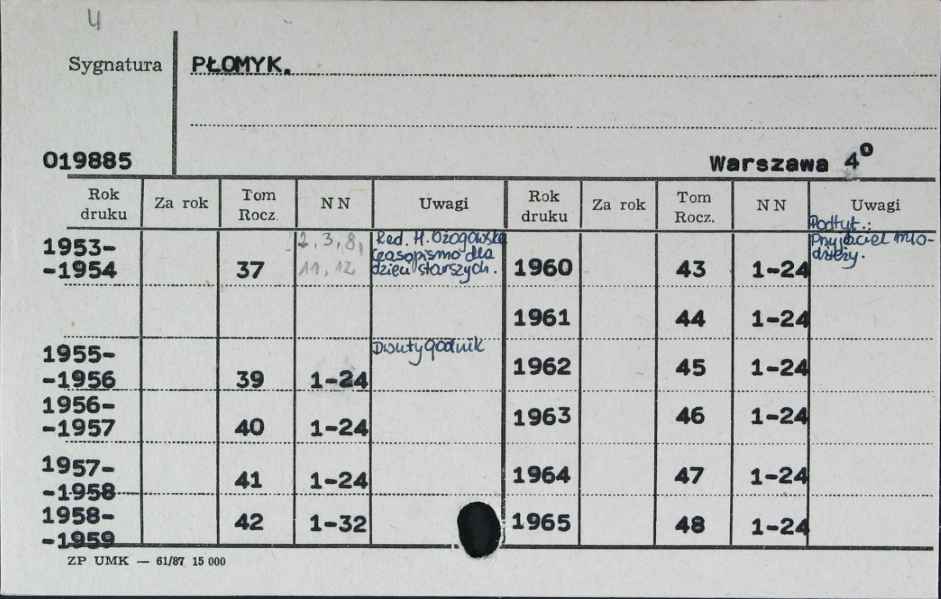 4
Sygnatura PŁOMYK.
019885 Warszawa 4°
Rok druku Za rok Tom Rocz. NN Uwagi Rok druku Za rok Tom Rocz. NN Uwagi
1953-
-1954 37 2, 3, 8, 11, 12 Red. H. Ożogowska czasopismo dla dzieci starszych. 1960 43 1-24 Podtyt.: Przyjaciel mło-dzieży.
1961 44 1-24
1955-
-1956 39 1-24 Dwutygodnik 1962 45 1-24
1956-
-1957 40 1-24 1963 46 1-24
1957-
-1958 41 1-24 1964 47 1-24
1958-
-1959 42 1-32 1965 48 1-24
ZP UMK — 61/87 15 000